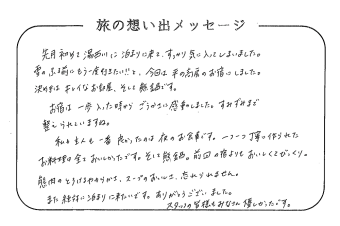 旅の想い出メッセージ
先月初めて湯西川に泊まりに来て、すっかり気に入ってしまいました。
雪のふる前にもう一度行きたい!!と、今回は平の高房のお宿にしました。
決め手はキレイなお部屋、そして熊鍋です。
お宿は一歩入った時から ごうかさに感動しました。すみずみまで
整えられていますね。
私も主人も一番良かったのは夜のお食事です。一つ一つ丁寧に作られた
お料理は全ておいしかったです。そして熊鍋。前回の宿よりもおいしくてびっくり。
熊肉のとろけるやわらかさ、スープのおいしさ、忘れられません。
また絶対に泊まりに来たいです。ありがとうございました。
スタッフの皆様もみなさん優しかったです。